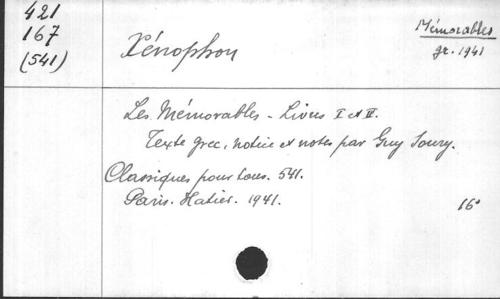 421
167
(541)
Xénophon
Mémorables
gr. 1941
Les Mémorables - Livres I et II.
Texte grec, notice et notes par Guy Soury.
Classiques pour tous. 541.
Paris. Hatier. 1941.
16°